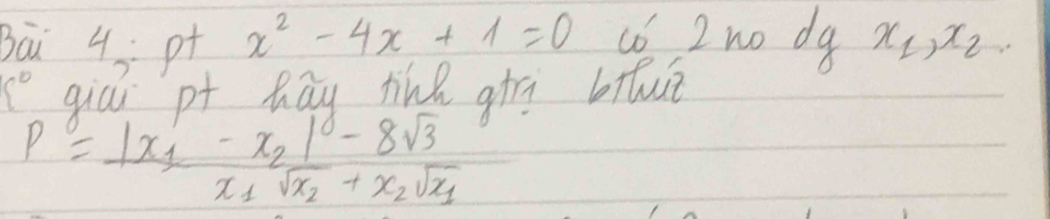 Bài 4: pt x² - 4x + 1 = 0 có 2 no dg x₁, x₂.
K° giải pt hãy tính gtrị bthức
P = |x₁ - x₂| - 8√3
x₁ √x₂ + x₂√x₁